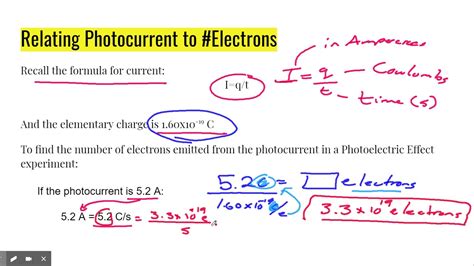 Relating Photocurrent to #Electrons
in Amperes
Recall the formula for current:
I=q/t
I = q/t
— Coulombs
— time (s)
And the elementary charge is 1.60x10⁻¹⁹ C
To find the number of electrons emitted from the photocurrent in a Photoelectric Effect
experiment:
If the photocurrent is 5.2 A:
5.2 A = 5.2 C/s = 3.3x10¹⁹ e / s
5.2 C / 1.60x10⁻¹⁹ C/e = electrons
3.3x10¹⁹ electrons